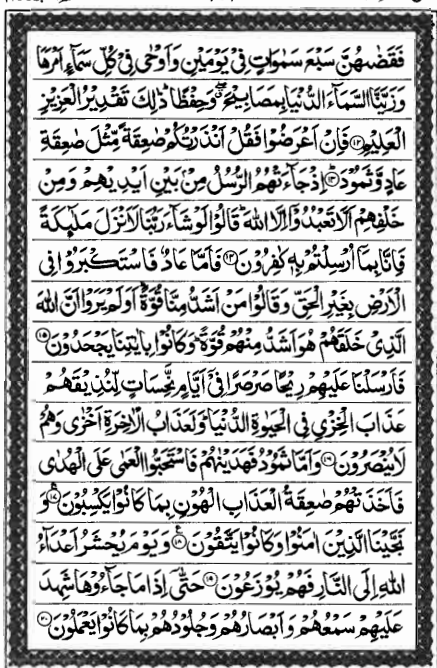 فَقَضٰىهُنَّ سَبْعَ سَمٰوَاتٍ فِيْ يَوْمَيْنِ وَاَوْحٰى فِيْ كُلِّ سَمَآءٍ اَمْرَهَا
وَزَيَّنَّا السَّمَآءَ الدُّنْيَا بِمَصَابِيْحَ وَحِفْظًا ذٰلِكَ تَقْدِيْرُ الْعَزِيْزِ
الْعَلِيْمِ ۝۱۲ فَاِنْ اَعْرَضُوْا فَقُلْ اَنْذَرْتُكُمْ صٰعِقَةً مِّثْلَ صٰعِقَةِ
عَادٍ وَّثَمُوْدَ ۝۱۳ اِذْ جَآءَتْهُمُ الرُّسُلُ مِنْۢ بَيْنِ اَيْدِيْهِمْ وَمِنْ
خَلْفِهِمْ اَلَّا تَعْبُدُوْٓا اِلَّا اللّٰهَ قَالُوْا لَوْ شَآءَ رَبُّنَا لَاَنْزَلَ مَلٰٓئِكَةً
فَاِنَّا بِمَآ اُرْسِلْتُمْ بِهٖ كٰفِرُوْنَ ۝۱۴ فَاَمَّا عَادٌ فَاسْتَكْبَرُوْا فِي
الْاَرْضِ بِغَيْرِ الْحَقِّ وَقَالُوْا مَنْ اَشَدُّ مِنَّا قُوَّةً اَوَلَمْ يَرَوْا اَنَّ اللّٰهَ
الَّذِيْ خَلَقَهُمْ هُوَ اَشَدُّ مِنْهُمْ قُوَّةً وَكَانُوْا بِاٰيٰتِنَا يَجْحَدُوْنَ ۝۱۵
فَاَرْسَلْنَا عَلَيْهِمْ رِيْحًا صَرْصَرًا فِيْٓ اَيَّامٍ نَّحِسَاتٍ لِّنُذِيْقَهُمْ
عَذَابَ الْخِزْيِ فِي الْحَيٰوةِ الدُّنْيَا وَلَعَذَابُ الْاٰخِرَةِ اَخْزٰى وَهُمْ
لَا يُنْصَرُوْنَ ۝۱۶ وَاَمَّا ثَمُوْدُ فَهَدَيْنٰهُمْ فَاسْتَحَبُّوا الْعَمٰى عَلَى الْهُدٰى
فَاَخَذَتْهُمْ صٰعِقَةُ الْعَذَابِ الْهُوْنِ بِمَا كَانُوْا يَكْسِبُوْنَ ۝۱۷ وَ
نَجَّيْنَا الَّذِيْنَ اٰمَنُوْا وَكَانُوْا يَتَّقُوْنَ ۝۱۸ وَيَوْمَ يُحْشَرُ اَعْدَآءُ
اللّٰهِ اِلَى النَّارِ فَهُمْ يُوْزَعُوْنَ ۝۱۹ حَتّٰٓى اِذَا مَا جَآءُوْهَا شَهِدَ
عَلَيْهِمْ سَمْعُهُمْ وَاَبْصَارُهُمْ وَجُلُوْدُهُمْ بِمَا كَانُوْا يَعْمَلُوْنَ ۝۲۰